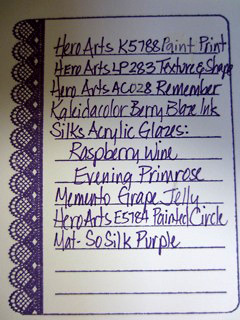 Hero Arts K5788 Paint Print
Hero Arts LP283 Texture & Shape
Hero Arts AC028 Remember
Kaleidacolor Berry Blaze Ink
Silks Acrylic Glazes:
Raspberry Wine
Evening Primrose
Memento Grape Jelly
Hero Arts E5784 Painted Circle
Mat- So Silk Purple